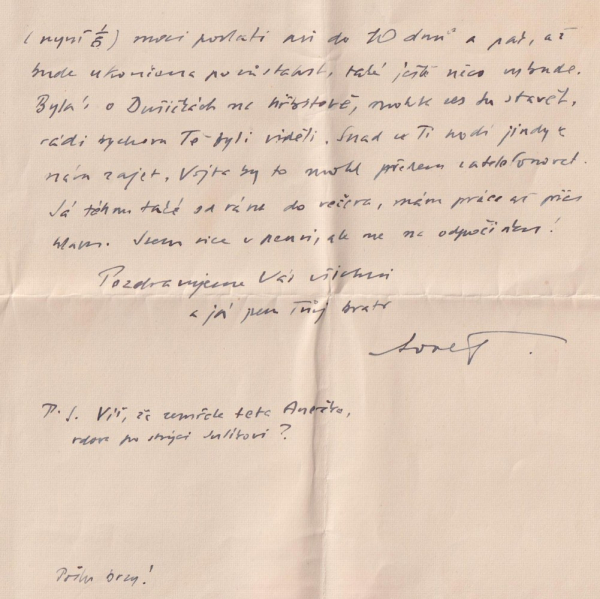 (nyní 1/6) moci poslati asi do 10 dnů a pak, až
bude ukončena pozůstalost, také ještě něco vybude.
Byla's o Dušičkách na hřbitově, mohla ses tu stavět,
rádi bychom Tě byli viděli. Snad se Ti hodí jindy k
nám zajet, Vojta by to mohl předem zatelefonovat.
Já téhnu také od rána do večera, mám práce až přes
hlavu. Jsem sice v pensi, ale ne na odpočinku!
Pozdravujeme Vás všichni
a já jsem Tvůj bratr
Josef.
P. S. Víš, že zemřela teta
vdova po strýci
Pošlu brzy!